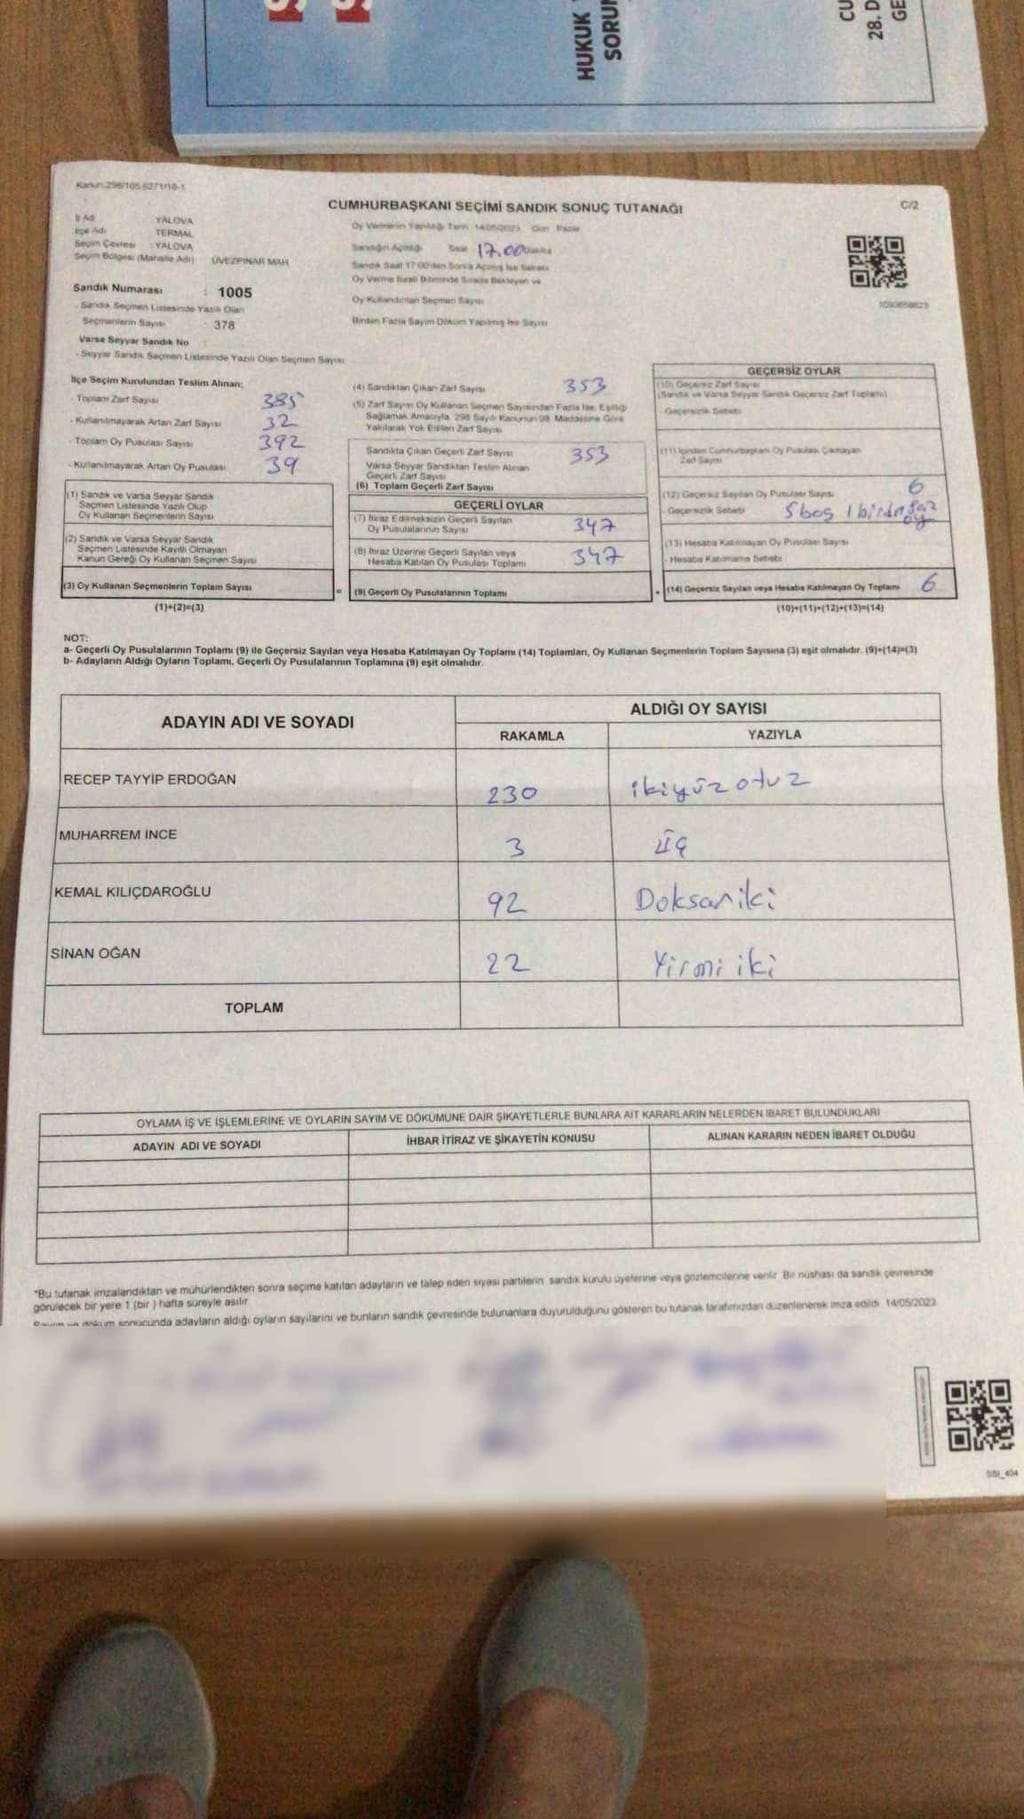 HUKUK
SORUN
CU
28. D
GE
Kanun:298/105,6271/18-1
CUMHURBAŞKANI SEÇİMİ SANDIK SONUÇ TUTANAĞI
C/2
İl Adı YALOVA
İlçe Adı TERMAL
Seçim Çevresi : YALOVA
Seçim Bölgesi (Mahalle Adı) ÜVEZPINAR MAH.
Sandık Numarası : 1005
- Sandık Seçmen Listesinde Yazılı Olan
Seçmenlerin Sayısı : 378
Varsa Seyyar Sandık No
- Seyyar Sandık Seçmen Listesinde Yazılı Olan Seçmen Sayısı
Oy Vermenin Yapıldığı Tarih 14/05/2023 Gün Pazar
Sandığın Açıldığı Saat 17.00
Sandık Saat 17:00'den Sonra Açılmış İse Sebebi
Oy Verme Saati Bitiminde Sırada Bekleyen ve
Oy Kullandırılan Seçmen Sayısı
Birden Fazla Sayım Döküm Yapılmış İse Sayısı
İlçe Seçim Kurulundan Teslim Alınan;
- Toplam Zarf Sayısı 385
- Kullanılmayarak Artan Zarf Sayısı 32
- Toplam Oy Pusulası Sayısı 392
- Kullanılmayarak Artan Oy Pusulası 39
(1) Sandık ve Varsa Seyyar Sandık
Seçmen Listesinde Yazılı Olup
Oy Kullanan Seçmenlerin Sayısı
(2) Sandık ve Varsa Seyyar Sandık
Seçmen Listesinde Kayıtlı Olmayan
Kanun Gereği Oy Kullanan Seçmen Sayısı
(3) Oy Kullanan Seçmenlerin Toplam Sayısı
(1)+(2)=(3)
(4) Sandıktan Çıkan Zarf Sayısı 353
(5) Zarf Sayısı Oy Kullanan Seçmen Sayısından Fazla İse, Eşitliği
Sağlamak Amacıyla, 298 Sayılı Kanunun 98. Maddesine Göre
Yakılarak Yok Edilen Zarf Sayısı
Sandıkta Çıkan Geçerli Zarf Sayısı 353
Varsa Seyyar Sandıktan Teslim Alınan
Geçerli Zarf Sayısı
(6) Toplam Geçerli Zarf Sayısı
GEÇERLİ OYLAR
(7) İtiraz Edilmeksizin Geçerli Sayılan
Oy Pusulalarının Sayısı 347
(8) İtiraz Üzerine Geçerli Sayılan veya
Hesaba Katılan Oy Pusulası Toplamı 347
= (9) Geçerli Oy Pusulalarının Toplamı
GEÇERSİZ OYLAR
(10) Geçersiz Zarf Sayısı
(Sandık ve Varsa Seyyar Sandık Geçersiz Zarf Toplamı)
Geçersizlik Sebebi
(11) İçinden Cumhurbaşkanı Oy Pusulası Çıkmayan
Zarf Sayısı
(12) Geçersiz Sayılan Oy Pusulası Sayısı 6
Geçersizlik Sebebi 5 boş 1 birden faz
oy
(13) Hesaba Katılmayan Oy Pusulası Sayısı
- Hesaba Katılmama Sebebi
+ (14) Geçersiz Sayılan veya Hesaba Katılmayan Oy Toplamı 6
(10)+(11)+(12)+(13)=(14)
NOT:
a- Geçerli Oy Pusulalarının Toplamı (9) ile Geçersiz Sayılan veya Hesaba Katılmayan Oy Toplamı (14) Toplamları, Oy Kullanan Seçmenlerin Toplam Sayısına (3) eşit olmalıdır. (9)+(14)=(3)
b- Adayların Aldığı Oyların Toplamı, Geçerli Oy Pusulalarının Toplamına (9) eşit olmalıdır.
ADAYIN ADI VE SOYADI
ALDIĞI OY SAYISI
RAKAMLA YAZIYLA
RECEP TAYYİP ERDOĞAN 230 ikiyüz otuz
MUHARREM İNCE 3 üç
KEMAL KILIÇDAROĞLU 92 Doksan iki
SİNAN OĞAN 22 Yirmi iki
TOPLAM
OYLAMA İŞ VE İŞLEMLERİNE VE OYLARIN SAYIM VE DÖKÜMÜNE DAİR ŞİKAYETLERLE BUNLARA AİT KARARLARIN NELERDEN İBARET BULUNDUKLARI
ADAYIN ADI VE SOYADI İHBAR İTİRAZ VE ŞİKAYETİN KONUSU ALINAN KARARIN NEDEN İBARET OLDUĞU
*Bu tutanak imzalandıktan ve mühürlendikten sonra seçime katılan adayların ve talep eden siyasi partilerin sandık kurulu üyelerine veya gözlemcilerine verilir. Bir nüshası da sandık çevresinde
görülecek bir yere 1 (bir) hafta süreyle asılır.
Sayım ve döküm sonucunda adayların aldığı oyların sayılarını ve bunların sandık çevresinde bulunanlara duyurulduğunu gösteren bu tutanak tarafımızdan düzenlenerek imza edildi. 14/05/2023